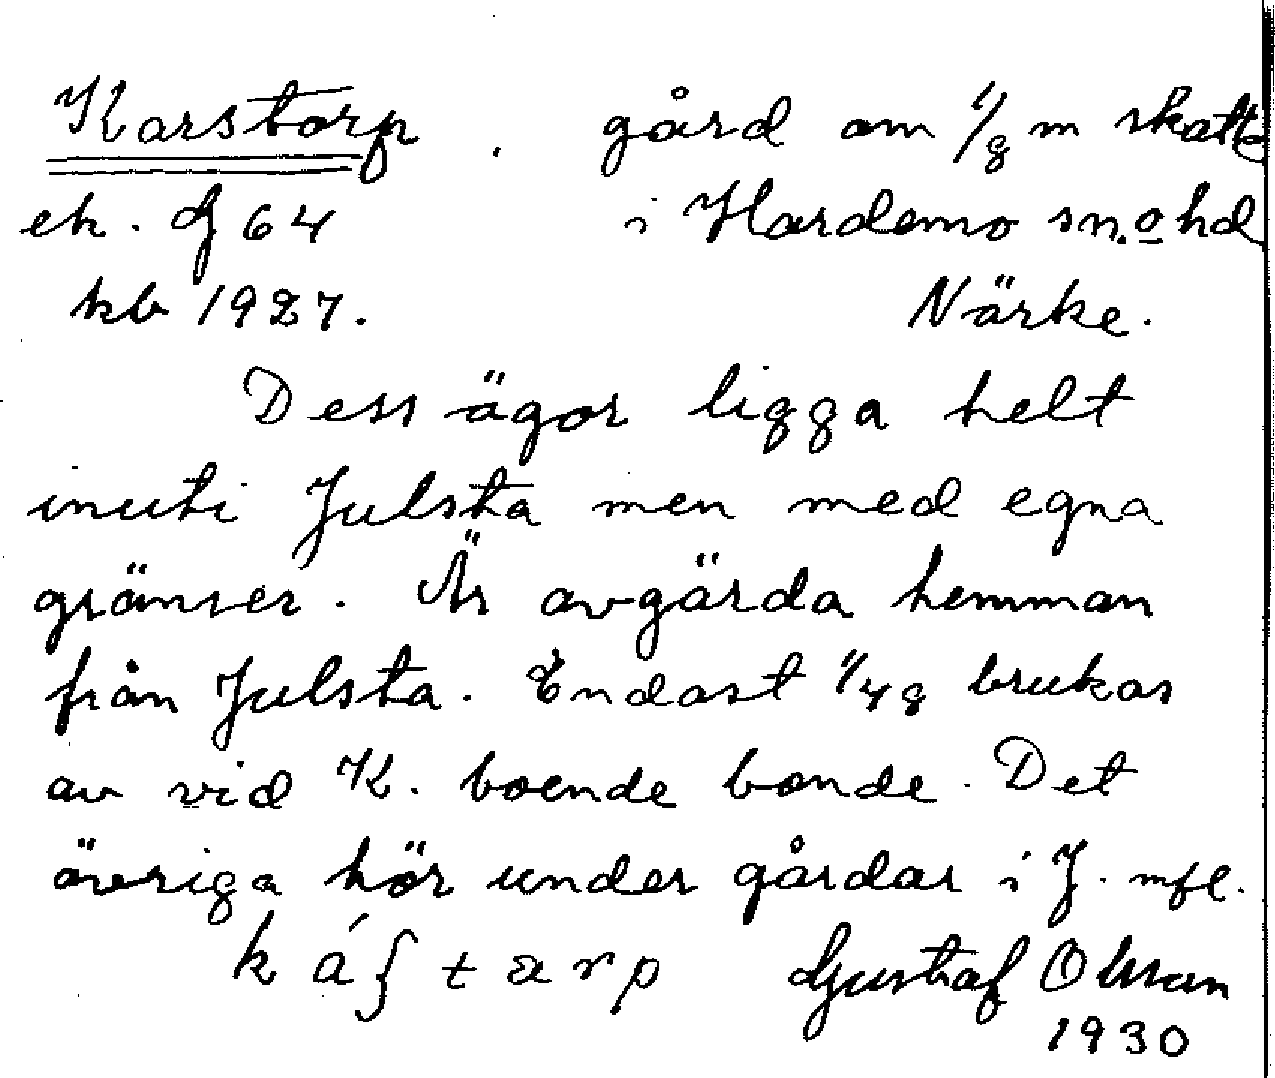 Karstorp. gård om 1/8 m skatte
ek. G 64 i Hardemo sn. o hd
kb 1927. Närke.
Dess ägor ligga helt
inuti Julsta men med egna
gränser. Är avgärda hemman
från Julsta. Endast 1/48 brukas
av vid K. boende bonde. Det
övriga hör under gårdar i J. mfl.
káʃtarp Gustaf Olsson
1930